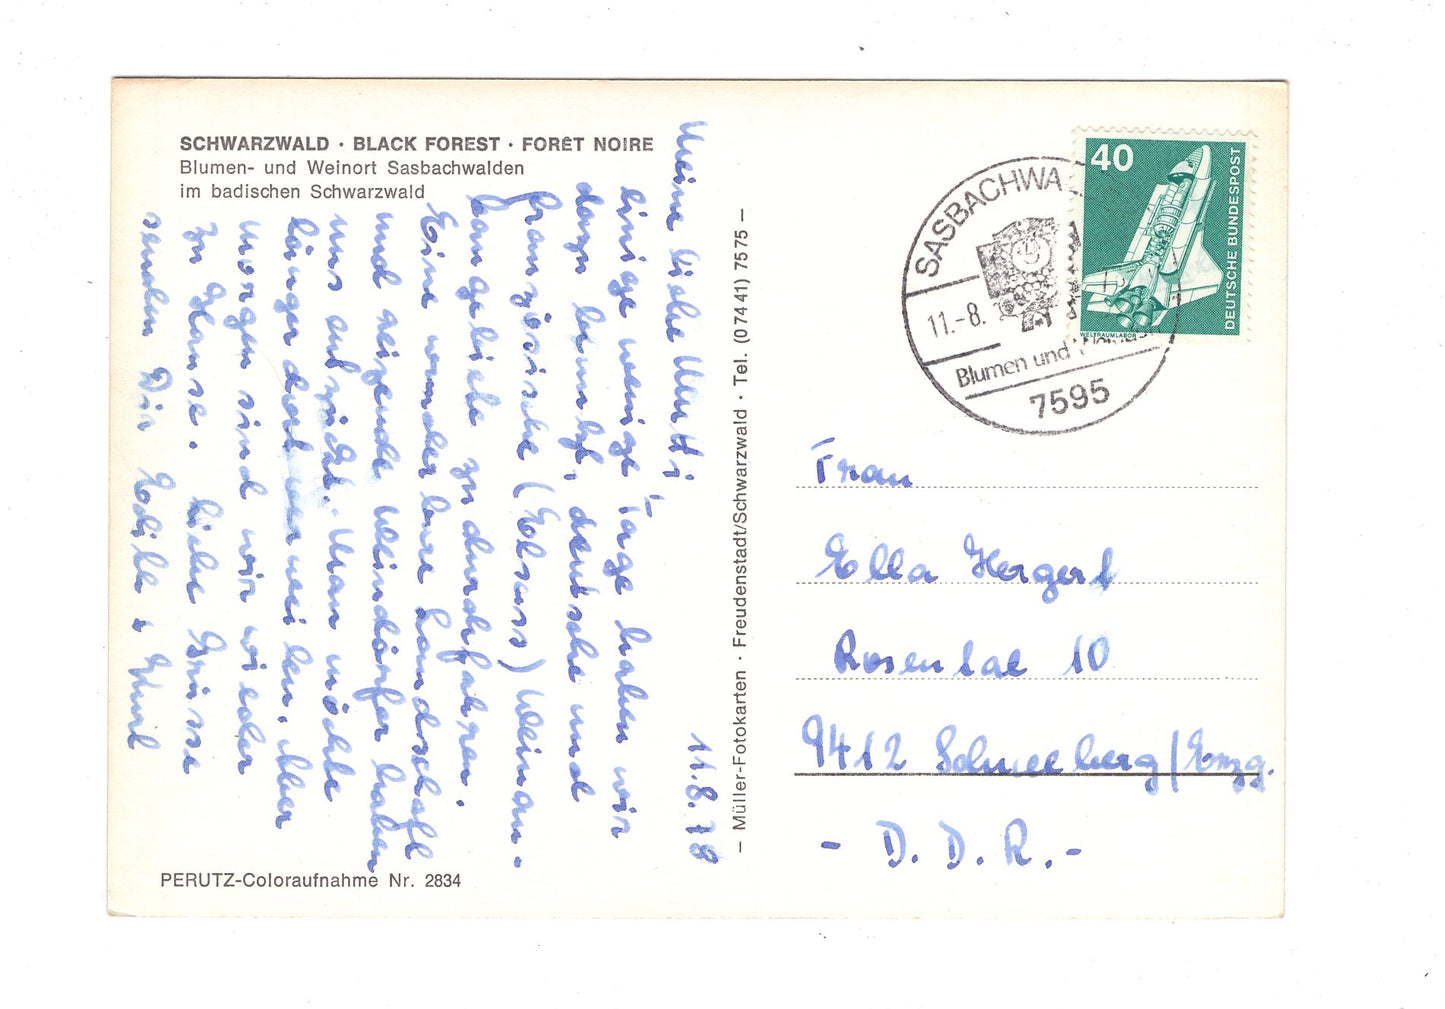 SCHWARZWALD · BLACK FOREST · FORÊT NOIRE
Blumen- und Weinort Sasbachwalden
im badischen Schwarzwald
11.8.78
Meine liebe Mutti,
Einige wenige Tage haben wir
dazu benutzt, deutsche und
französische (Elsass) Weinan-
baugebiete zu durchfahren.
Eine wunderbare Landschaft
und reizende Weindörfer haben
uns entzückt. Man möchte
länger dort verweilen. Aber
morgen sind wir wieder
zu Hause. Liebe Grüsse
senden Dir Edith &
PERUTZ-Coloraufnahme Nr. 2834
– Müller-Fotokarten · Freudenstadt/Schwarzwald · Tel. (0 74 41) 75 75 –
SASBACHWA
11.-8.
Blumen und
7595
40
DEUTSCHE BUNDESPOST
WELTRAUMLABOR
Frau
Ella Hergert
Rosental 10
9412 Schneeberg/Erzg.
- D. D. R. -